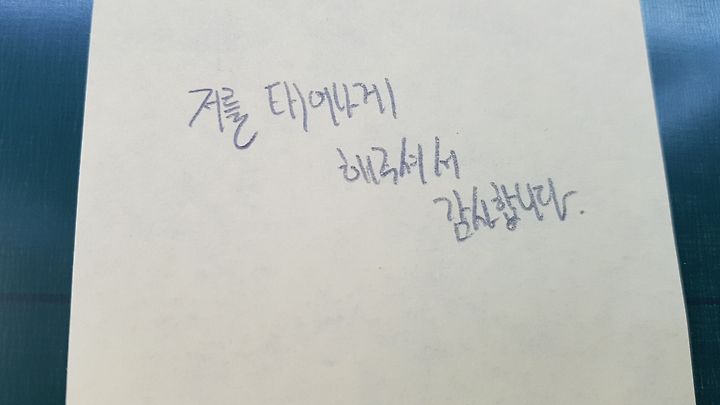 저를 태어나게
해주셔서
감사합니다.